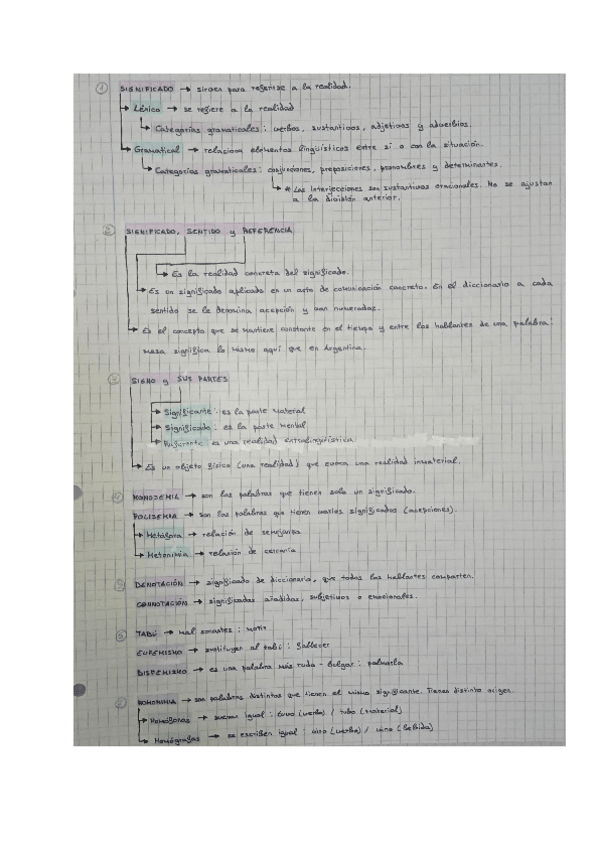 ① SIGNIFICADO → sirven para referirse a la realidad.
→ Léxico → se refiere a la realidad
→ Categorías gramaticales: verbos, sustantivos, adjetivos y adverbios.
→ Gramatical → relaciona elementos lingüísticos entre sí o con la situación.
→ Categorías gramaticales: conjunciones, preposiciones, pronombres y determinantes.
→ * Las interjecciones son sustantivos oracionales. No se ajustan
a la división anterior.
② SIGNIFICADO, SENTIDO y REFERENCIA
→ Es la realidad concreta del significado.
→ Es un significado aplicado en un acto de comunicación concreto. En el diccionario a cada
sentido se le denomina acepción y van numeradas.
→ Es el concepto que se mantiene constante en el tiempo y entre los hablantes de una palabra:
mesa significa lo mismo aquí que en Argentina.
③ SIGNO y SUS PARTES
→ Significante: es la parte material
→ Significado: es la parte mental
→ Referente: es una realidad extralingüística
→ Es un objeto físico (una realidad) que evoca una realidad inmaterial.
④ MONOSEMIA → son las palabras que tienen solo un significado.
POLISEMIA → son las palabras que tienen varios significados (acepciones).
→ Metáfora → relación de semejanza
→ Metonimia → relación de cercanía
⑤ DENOTACIÓN → significado de diccionario, que todos los hablantes comparten.
CONNOTACIÓN → significados añadidos, subjetivos o emocionales.
⑥ TABÚ → mal sonantes: morir
EUFEMISMO → sustituyen al tabú: fallecer
DISFEMISMO → es una palabra más ruda - vulgar: palmarla
⑦ HOMONIMIA → son palabras distintas que tienen el mismo significante. Tienen distinto origen.
→ Homófonas → suenan igual: tuvo (verbo) / tubo (material)
→ Homógrafas → se escriben igual: vino (verbo) / vino (bebida)